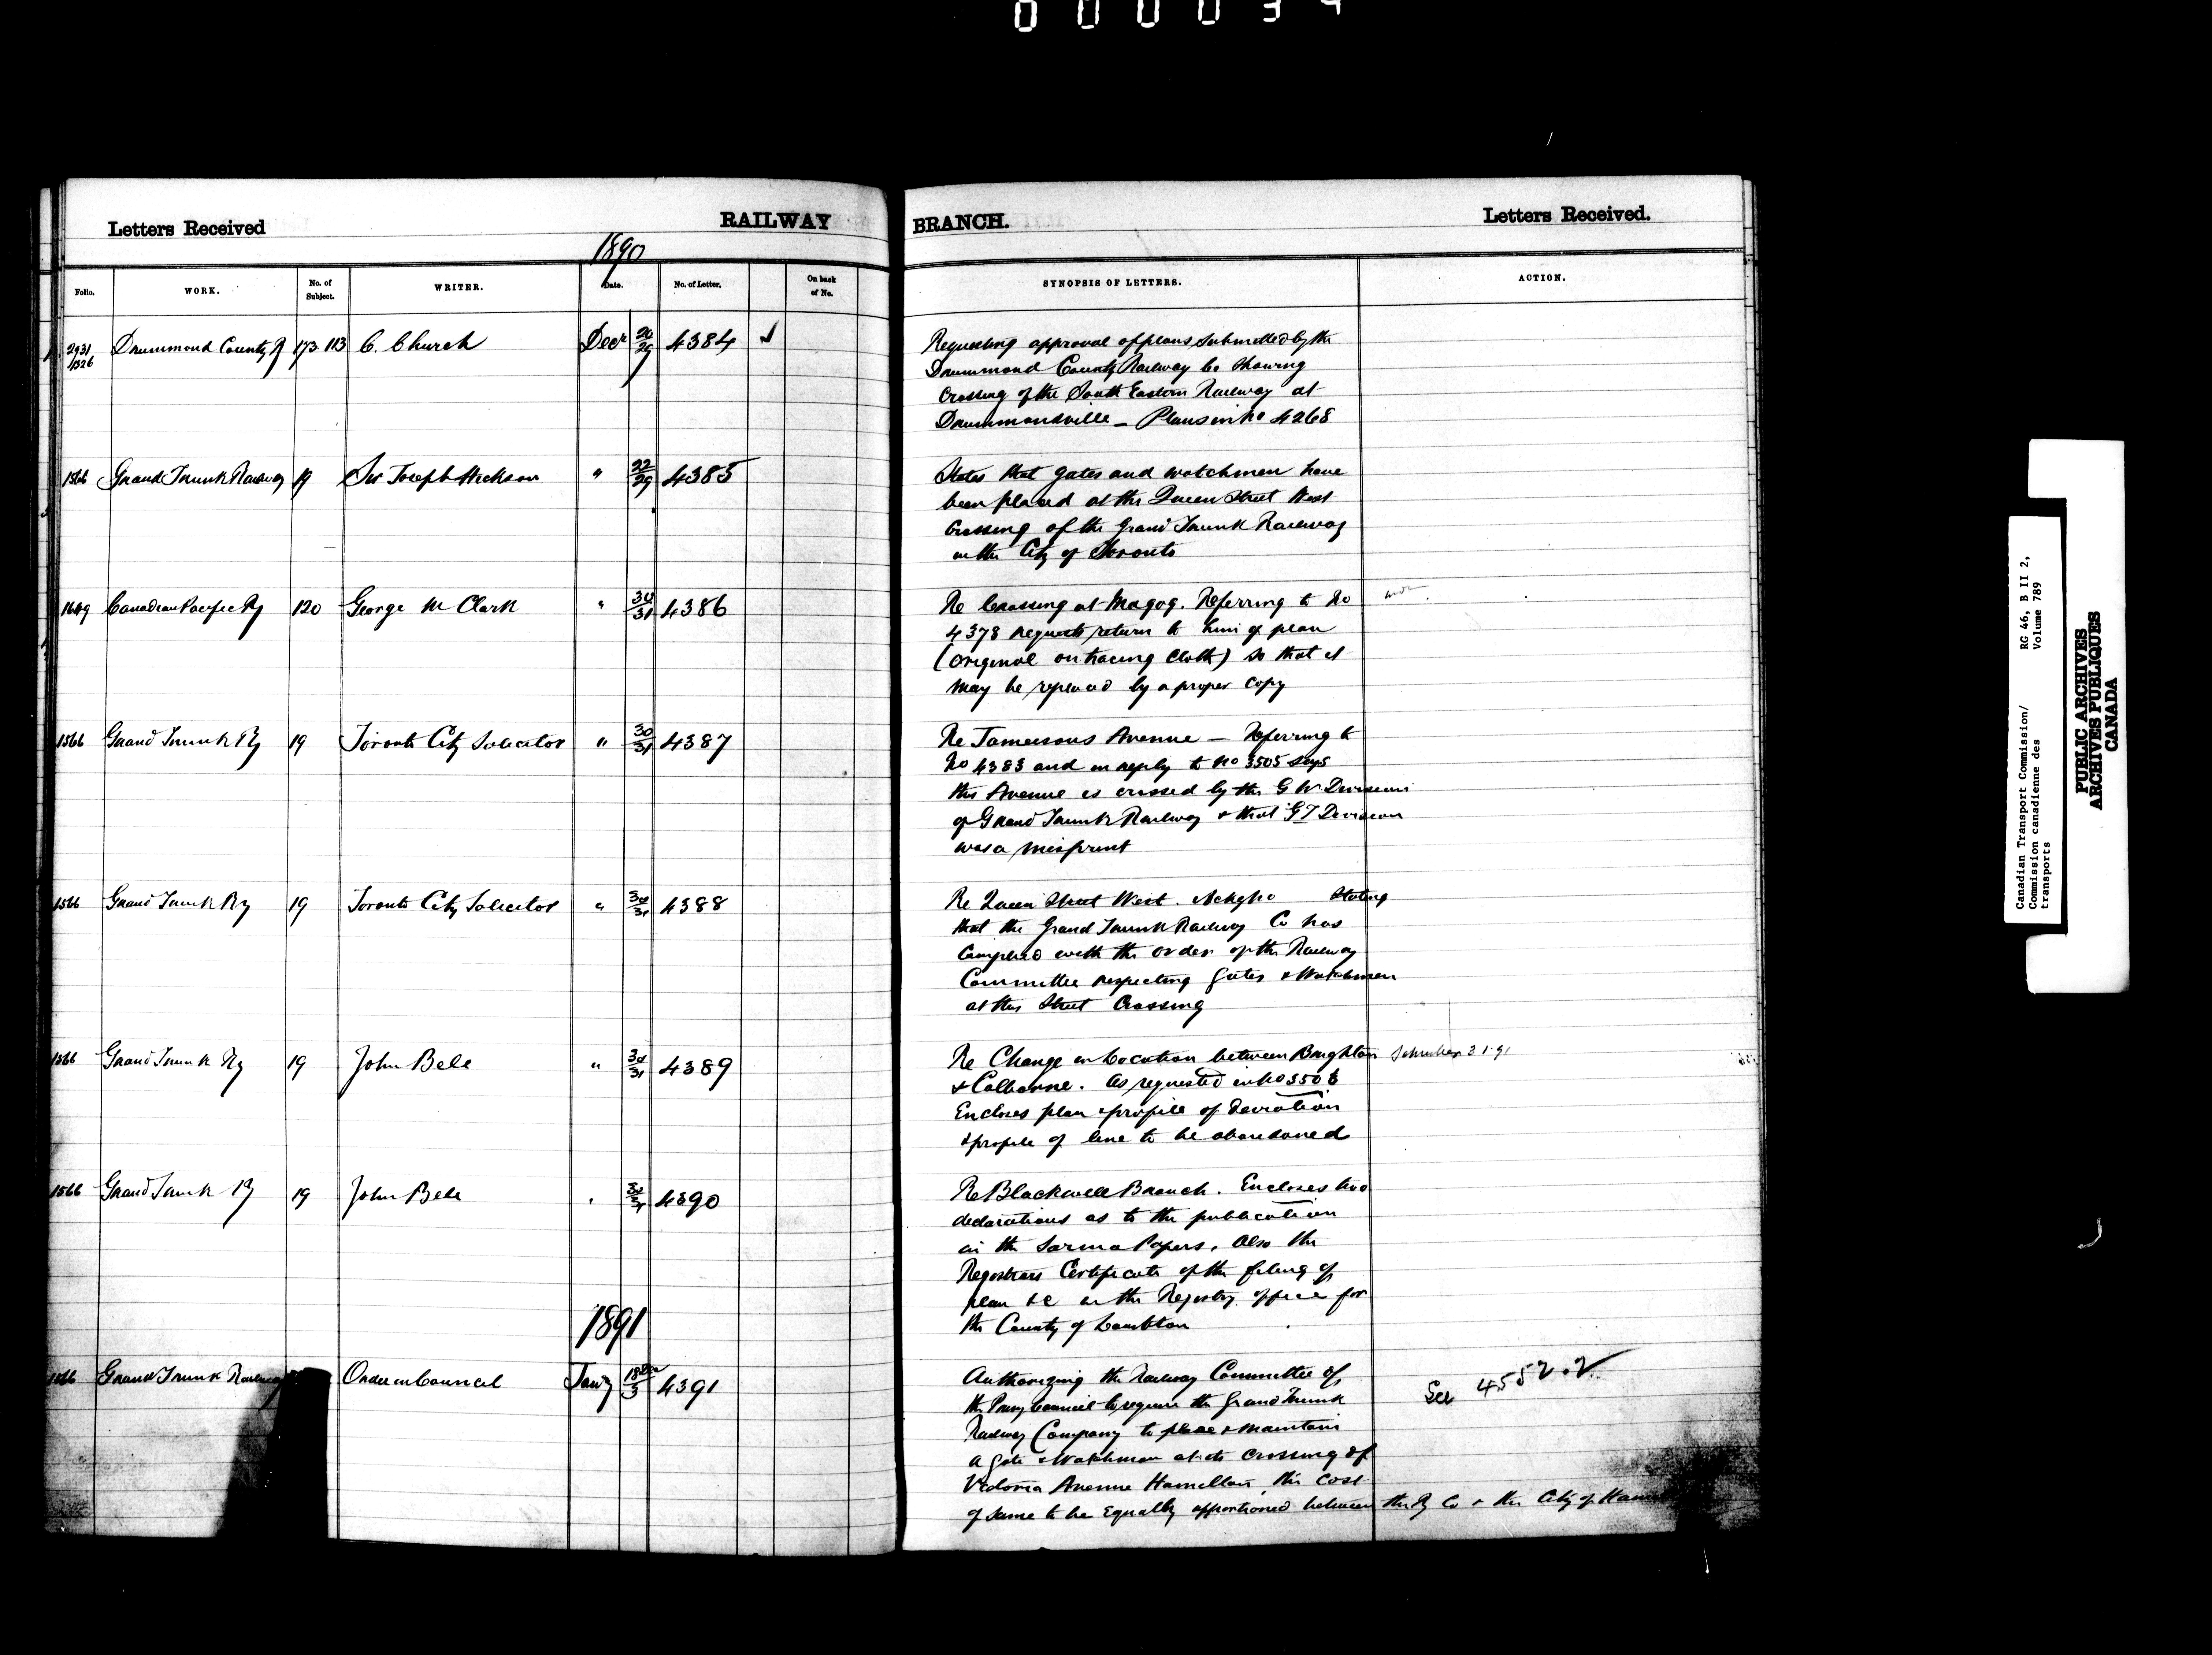 000034
Letters Received RAILWAY BRANCH. Letters Received.
1890
Folio. WORK. No. of Subject. WRITER. Date. No. of Letter. On back of No. SYNOPSIS OF LETTERS. ACTION.
2931 Drummond County Ry 173 113 C. Church Decr 20/29 4384 Requesting approval of plans submitted by the
1526 Drummond County Railway Co showing
crossing of the South Eastern Railway at
Drummondville — Plans in No 4268
1566 Grand Trunk Railway 19 Sir Joseph Hickson " 22/29 4385 States that gates and watchmen have
been placed at the Queen Street West
Crossing of the Grand Trunk Railway
in the City of Toronto
1609 Canadian Pacific Ry 120 George M Clark " 30/31 4386 Re Crossing at Magog. Referring to No
4378 requests return to him of plan
(original on tracing cloth) so that it
may be replaced by a proper copy
1566 Grand Trunk Ry 19 Toronto City Solicitor " 30/31 4387 Re Jamesons Avenue — Referring to
No 4383 and in reply to No 3505 says
this Avenue is crossed by the G W Division
of Grand Trunk Railway & that GT Division
was a misprint
1566 Grand Trunk Ry 19 Toronto City Solicitor " 30/31 4388 Re Queen Street West. Ackg No Stating
that the Grand Trunk Railway Co has
complied with the order of the Railway
Committee respecting gates & Watchmen
at this Street Crossing
1566 Grand Trunk Ry 19 John Bell " 30/31 4389 Re Change in Location between Brighton Schreiber 3 1 91
& Colborne. As requested in No 3506
Encloses plan & profile of deviation
& profile of line to be abandoned
1566 Grand Trunk Ry 19 John Bell " 30/31 4390 Re Blackwell Branch. Encloses two
declarations as to the publication
in the Sarnia Papers. Also the
Registrars Certificate of the filing of
plan &c in the Registry office for
the County of Lambton
1891
1566 Grand Trunk Railway Order in Council Jany 3 4391 Authorizing the Railway Committee of
the Privy Council to require the Grand Trunk See 4552.2
Railway Company to place & maintain
a gate & Watchman at its crossing of
Victoria Avenue Hamilton, the cost
of same to be equally apportioned between the Ry Co & the City of
Canadian Transport Commission/ RG 46, B II 2,
Commission canadienne des Volume 789
transports
PUBLIC ARCHIVES
ARCHIVES PUBLIQUES
CANADA